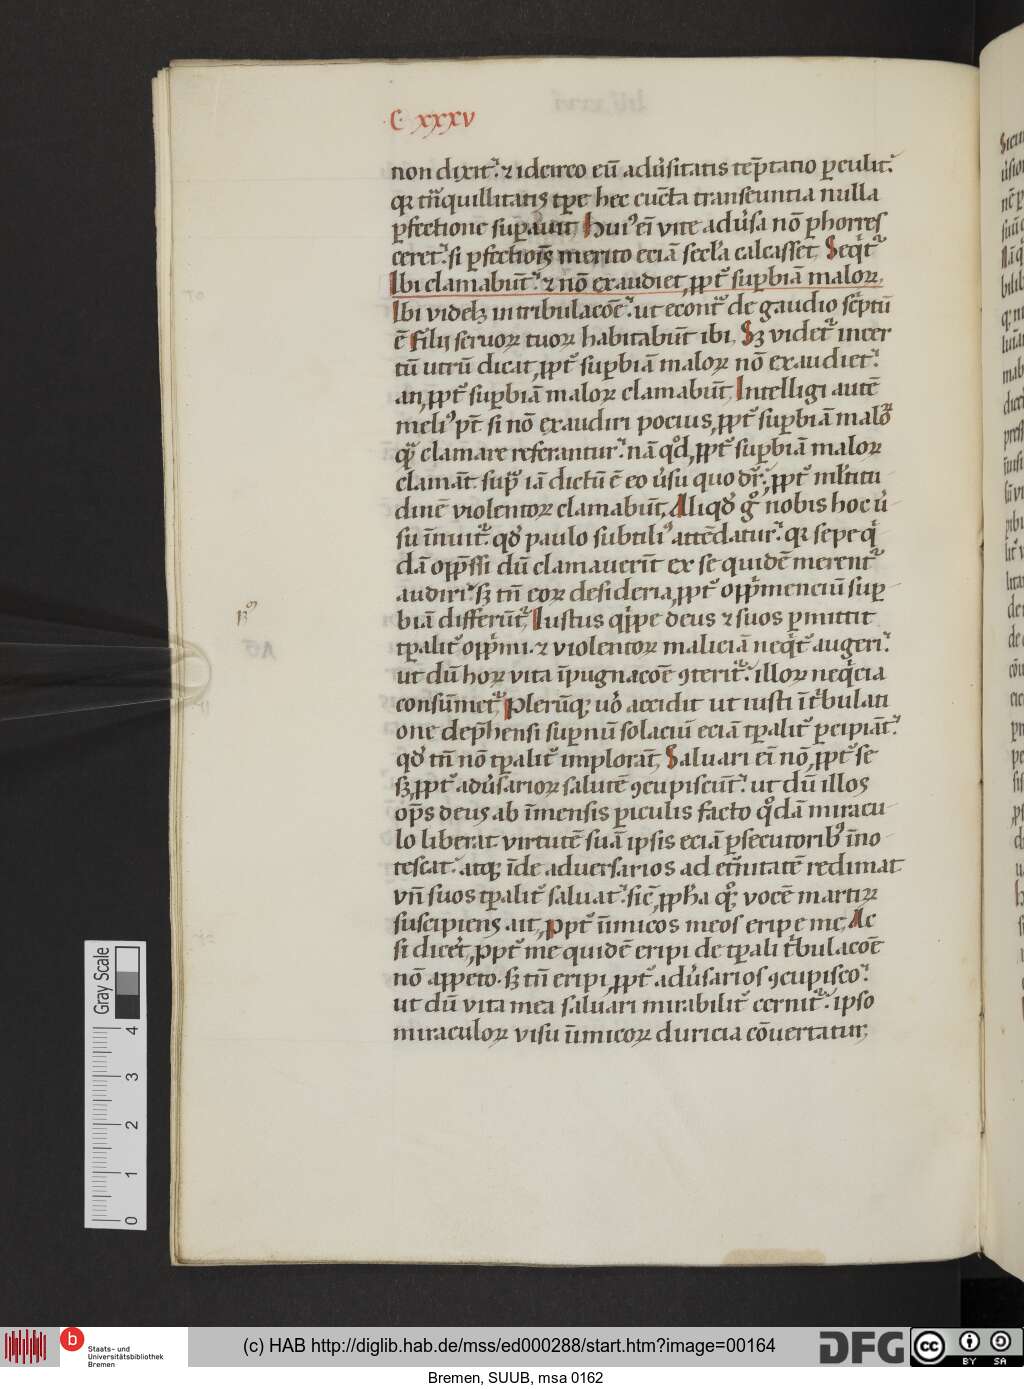 C xxxv
non dixit. ⁊ idcirco eū adu̓sitatis tēptatio ꝑculit.
qꝛ tn̄quillitatis tꝑe hec cūcta transeuntia nulla
ꝑfectione suꝑauit Huiꝰ ei̅ vite adu̓sa nō ꝑhorres
ceret. si ꝑfectiois̄ merito eciā secl̓a calcasset, Seqͥtᷣ
Ibi clamabūt. ⁊ nō exaudiet, ꝓptᷣ suꝑbiā maloꝝ,
Ibi videlꝫ in tribulacōe. ut econtᷣ de gaudio scͥptū
ē Filij seruoꝝ tuoꝝ habitabūt ibi, Sꝫ videtᷣ incer
tū utrū dicat, ꝓptᷣ suꝑbiā maloꝝ nō exaudiet.
an, ꝓptᷣ suꝑbiā maloꝝ clamabūt, Intelligi autē
meliꝰ pt̄ si nō exaudiri pocius, ꝓptᷣ suꝑbiā maloꝝ
qᷓ clamare referantur. nā qd̓, ꝓptᷣ suꝑbiā maloꝝ
clamāt supᷓ iā dictū ē eo u̓su quo dr̄, ꝓptᷣ ml̓titu
dinē violentoꝝ clamabūt, Aliqd̓ gͦ nobis hoc u̓
su īnuitᷣ. qd̓ paulo subtiliꝰ attēdatur. qꝛ sepe qͥ
dā opp̄ssi dū clamauerīt ex se quidē merentᷣ
audiri. sꝫ tn̄ eoꝝ desideria, ꝓptᷣ oppͥmenciū suꝑ
biā differūtᷣ, Iustus qͥppe deus ⁊ suos ꝑmittit
tꝑalitᷣ oppͥmi. ⁊ violentoꝝ maliciā neqͥtᷣ augeri.
ut dū hoꝝ vita īpugnacōe ꝯteritᷣ. illoꝝ neqͥcia
consūmetᷣ, Plerūqꝫ uo̓ accidit ut iusti ītͥbulati
one dep̄hensi suꝑnū solaciū eciā tꝑalitᷣ ꝑcipiāt.
qd̓ tn̄ nō tꝑalitᷣ implorāt, Saluari ei̅ nō, ꝓptᷣ se
sꝫ, ꝓptᷣ adu̓sarioꝝ salutē ꝯcupiscūt. ut dū illos
op̄s deus ab īmensis ꝑiculis facto qͦdā miracu
lo liberat virtutē suā ipsis eciā ꝑsecutoribꝰ īno
tescat. atqꝫ īde aduersarios ad etn̄itatē redimat
vn̄ suos tꝑalitᷣ saluat. sic̄, ꝓph̓a qͦqꝫ vocē martiꝝ
suscipiens ait, ꝓptᷣ īimicos meos eripe me, Ac
si dicet̓, ꝓptᷣ me quidē eripi de tꝑali tͥbulacōe
nō appeto. sꝫ tn̄ eripi, ꝓptᷣ adu̓sarios ꝯcupisco.
ut dū vita mea saluari mirabilitᷣ cernitᷣ. ipso
miraculoꝝ visu īimicoꝝ duricia cōuertatur,
Gray Scale
4
3
2
1
0
b
Staats- und
Universitätsbibliothek
Bremen
(c) HAB http://diglib.hab.de/mss/ed000288/start.htm?image=00164
DFG
cc
BY SA
Bremen, SUUB, msa 0162